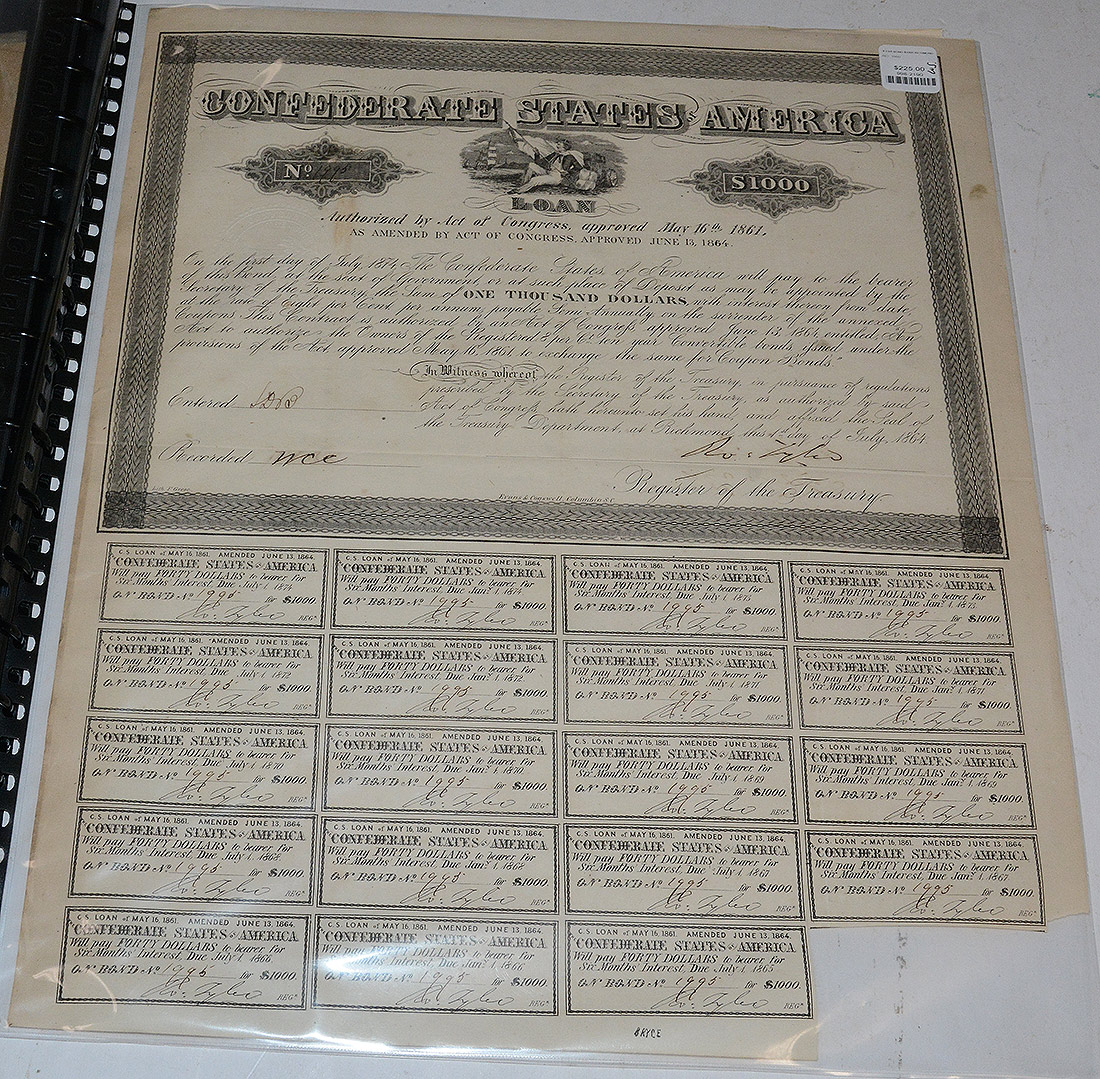 $225.00
CONFEDERATE STATES OF AMERICA
No 1995
$1000
LOAN
Authorized by Act of Congress, approved May 16th 1861.
AS AMENDED BY ACT OF CONGRESS, APPROVED JUNE 13, 1864.
On the first day of July, 1874, The Confederate States of America will pay to the bearer
of this Bond, at the seat of Government or at such place of Deposit as may be appointed by the
Secretary of the Treasury, the Sum of ONE THOUSAND DOLLARS, with interest thereon from date,
at the rate of eight per Cent per annum, payable Semi Annually, on the surrender of the annexed
Coupons. This Contract is authorized by an Act of Congress approved June 13, 1864, entitled, "An
Act to authorize the Owners of the Registered 8 per Ct. ten year Convertible bonds issued under the
provisions of the Act approved May 16, 1861 to exchange the same for Coupon Bonds."
In Witness whereof, the Register of the Treasury, in pursuance of regulations
prescribed by the Secretary of the Treasury, as authorized by said
Entered
Act of Congress hath hereunto set his hand, and affixed the Seal of
the Treasury Department, at Richmond, this 1st day of July, 1864
Recorded WCC
Ro: Tyler
Register of the Treasury
Evans & Cogswell, Columbia S.C.
C.S. LOAN of MAY 16, 1861. AMENDED JUNE 13, 1864.
CONFEDERATE STATES OF AMERICA
Will pay FORTY DOLLARS to bearer for
Six Months Interest, Due July 1, 1874
ON BOND No 1995 for $1000.
Ro: Tyler REGr
C.S. LOAN of MAY 16, 1861. AMENDED JUNE 13, 1864.
CONFEDERATE STATES OF AMERICA
Will pay FORTY DOLLARS to bearer for
Six Months Interest, Due Jany 1, 1874
ON BOND No 1995 for $1000.
Ro: Tyler REGr
C.S. LOAN of MAY 16, 1861. AMENDED JUNE 13, 1864.
CONFEDERATE STATES OF AMERICA
Will pay FORTY DOLLARS to bearer for
Six Months Interest, Due July 1, 1873
ON BOND No 1995 for $1000.
Ro: Tyler REGr
C.S. LOAN of MAY 16, 1861. AMENDED JUNE 13, 1864.
CONFEDERATE STATES OF AMERICA
Will pay FORTY DOLLARS to bearer for
Six Months Interest, Due Jany 1, 1873
ON BOND No 1995 for $1000.
Ro: Tyler REGr
C.S. LOAN of MAY 16, 1861. AMENDED JUNE 13, 1864.
CONFEDERATE STATES OF AMERICA
Will pay FORTY DOLLARS to bearer for
Six Months Interest, Due July 1, 1872
ON BOND No 1995 for $1000.
Ro: Tyler REGr
C.S. LOAN of MAY 16, 1861. AMENDED JUNE 13, 1864.
CONFEDERATE STATES OF AMERICA
Will pay FORTY DOLLARS to bearer for
Six Months Interest, Due Jany 1, 1872
ON BOND No 1995 for $1000.
Ro: Tyler REGr
C.S. LOAN of MAY 16, 1861. AMENDED JUNE 13, 1864.
CONFEDERATE STATES OF AMERICA
Will pay FORTY DOLLARS to bearer for
Six Months Interest, Due July 1, 1871
ON BOND No 1995 for $1000.
Ro: Tyler REGr
C.S. LOAN of MAY 16, 1861. AMENDED JUNE 13, 1864.
CONFEDERATE STATES OF AMERICA
Will pay FORTY DOLLARS to bearer for
Six Months Interest, Due Jany 1, 1871
ON BOND No 1995 for $1000.
Ro: Tyler REGr
C.S. LOAN of MAY 16, 1861. AMENDED JUNE 13, 1864.
CONFEDERATE STATES OF AMERICA
Will pay FORTY DOLLARS to bearer for
Six Months Interest, Due July 1, 1870
ON BOND No 1995 for $1000.
Ro: Tyler REGr
C.S. LOAN of MAY 16, 1861. AMENDED JUNE 13, 1864.
CONFEDERATE STATES OF AMERICA
Will pay FORTY DOLLARS to bearer for
Six Months Interest, Due Jany 1, 1870
ON BOND No 1995 for $1000.
Ro: Tyler REGr
C.S. LOAN of MAY 16, 1861. AMENDED JUNE 13, 1864.
CONFEDERATE STATES OF AMERICA
Will pay FORTY DOLLARS to bearer for
Six Months Interest, Due July 1, 1869
ON BOND No 1995 for $1000.
Ro: Tyler REGr
C.S. LOAN of MAY 16, 1861. AMENDED JUNE 13, 1864.
CONFEDERATE STATES OF AMERICA
Will pay FORTY DOLLARS to bearer for
Six Months Interest, Due Jany 1, 1869
ON BOND No 1995 for $1000.
Ro: Tyler REGr
C.S. LOAN of MAY 16, 1861. AMENDED JUNE 13, 1864.
CONFEDERATE STATES OF AMERICA
Will pay FORTY DOLLARS to bearer for
Six Months Interest, Due July 1, 1868
ON BOND No 1995 for $1000.
Ro: Tyler REGr
C.S. LOAN of MAY 16, 1861. AMENDED JUNE 13, 1864.
CONFEDERATE STATES OF AMERICA
Will pay FORTY DOLLARS to bearer for
Six Months Interest, Due Jany 1, 1868
ON BOND No 1995 for $1000.
Ro: Tyler REGr
C.S. LOAN of MAY 16, 1861. AMENDED JUNE 13, 1864.
CONFEDERATE STATES OF AMERICA
Will pay FORTY DOLLARS to bearer for
Six Months Interest, Due July 1, 1867
ON BOND No 1995 for $1000.
Ro: Tyler REGr
C.S. LOAN of MAY 16, 1861. AMENDED JUNE 13, 1864.
CONFEDERATE STATES OF AMERICA
Will pay FORTY DOLLARS to bearer for
Six Months Interest, Due Jany 1, 1867
ON BOND No 1995 for $1000.
Ro: Tyler REGr
C.S. LOAN of MAY 16, 1861. AMENDED JUNE 13, 1864.
CONFEDERATE STATES OF AMERICA
Will pay FORTY DOLLARS to bearer for
Six Months Interest, Due July 1, 1866
ON BOND No 1995 for $1000.
Ro: Tyler REGr
C.S. LOAN of MAY 16, 1861. AMENDED JUNE 13, 1864.
CONFEDERATE STATES OF AMERICA
Will pay FORTY DOLLARS to bearer for
Six Months Interest, Due Jany 1, 1866
ON BOND No 1995 for $1000.
Ro: Tyler REGr
C.S. LOAN of MAY 16, 1861. AMENDED JUNE 13, 1864.
CONFEDERATE STATES OF AMERICA
Will pay FORTY DOLLARS to bearer for
Six Months Interest, Due July 1, 1865
ON BOND No 1995 for $1000.
Ro: Tyler REGr
BRYCE